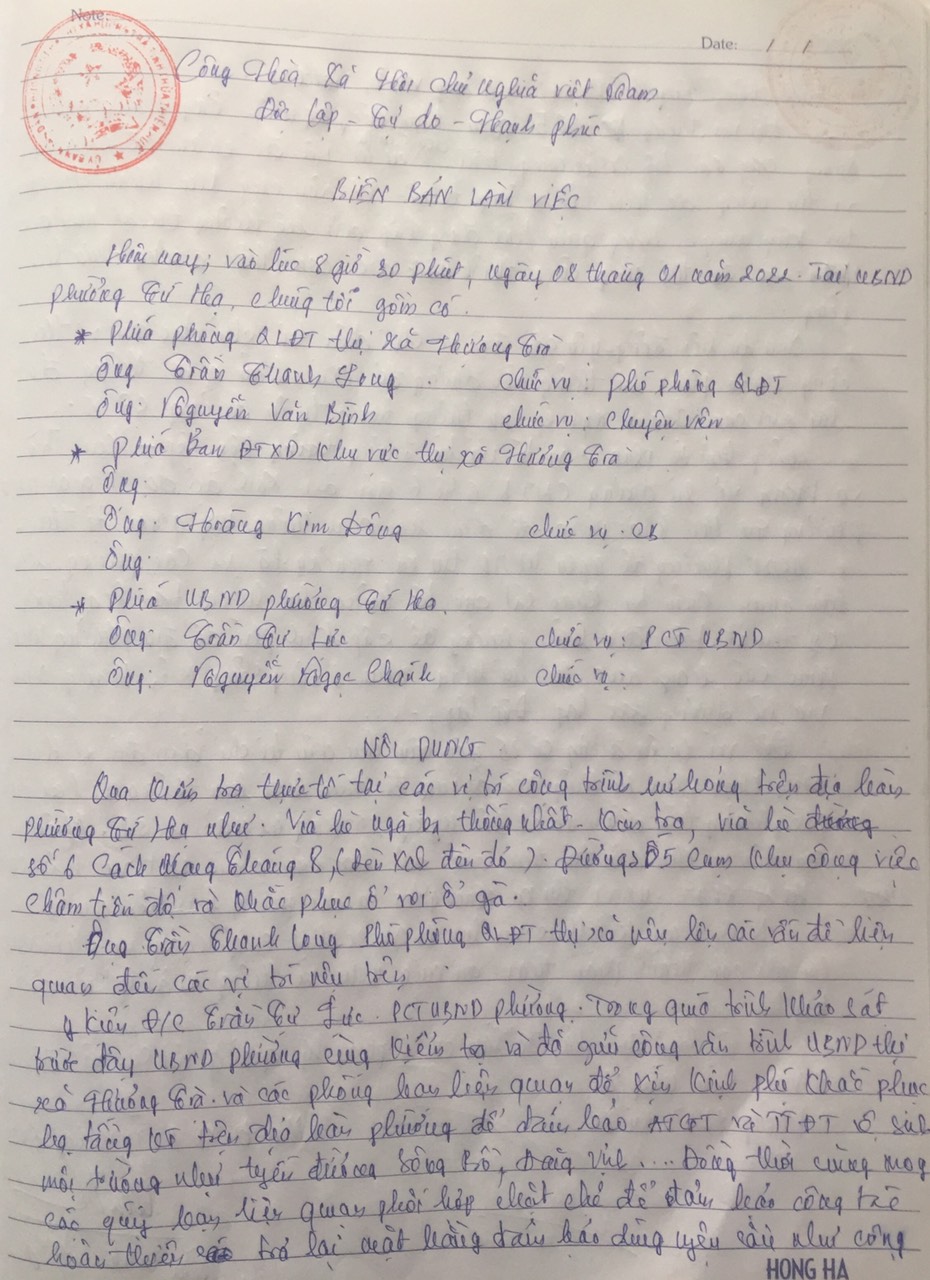 Note:
Date: / /
Cộng Hòa Xã Hội Chủ Nghĩa Việt Nam
Độc lập - Tự do - Hạnh phúc
BIÊN BẢN LÀM VIỆC
Hôm nay, vào lúc 8 giờ 30 phút, ngày 08 tháng 01 năm 2022. Tại UBND
phường Tứ Hạ, chúng tôi gồm có.
* Phía phòng QLĐT thị xã Hương Trà
Ông Trần Thanh Long. chức vụ: phó phòng QLĐT
Ông: Nguyễn Văn Bình chức vụ: chuyên viên
* Phía Ban ĐTXD khu vực thị xã Hương Trà
Ông:
Ông: Hoàng Kim Đồng chức vụ: CB
Ông:
* Phía UBND phường Tứ Hạ.
Ông: Trần Tư Lực chức vụ: PCT UBND
Ông: Nguyễn Ngọc Chánh chức vụ:
NỘI DUNG
Qua kiểm tra thực tế tại các vị trí công trình hư hỏng trên địa bàn
phường Tứ Hạ như. Vỉa hè ngã ba thống nhất - Kim trà, vỉa hè đường
số 6 Cách Mạng Tháng 8, (Đèn đỏ). Đường D5 Cụm khu công việc
chậm tiến độ và khắc phục ổ voi ổ gà.
Ông Trần Thanh Long Phó phòng QLĐT thị xã nêu lên các vấn đề liên
quan đến các vị trí nêu trên.
Ý kiến Đ/C Trần Tư Lực. PCT UBND phường. Trong quá trình khảo sát
trước đây UBND phường cùng kiểm tra và đã gửi công văn trình UBND thị
xã Hương Trà. và các phòng ban liên quan để xin kinh phí khắc phục
hạ tầng trên địa bàn phường để đảm bảo ATGT và TTĐT vệ sinh
môi trường như tuyến đường Sông Bồ, .... Đồng thời cũng mong
các quý ban liên quan phối hợp chặt chẽ để đảm bảo công trình
hoàn thiện trả lại mặt bằng đảm bảo đúng yêu cầu như công
HONG HA